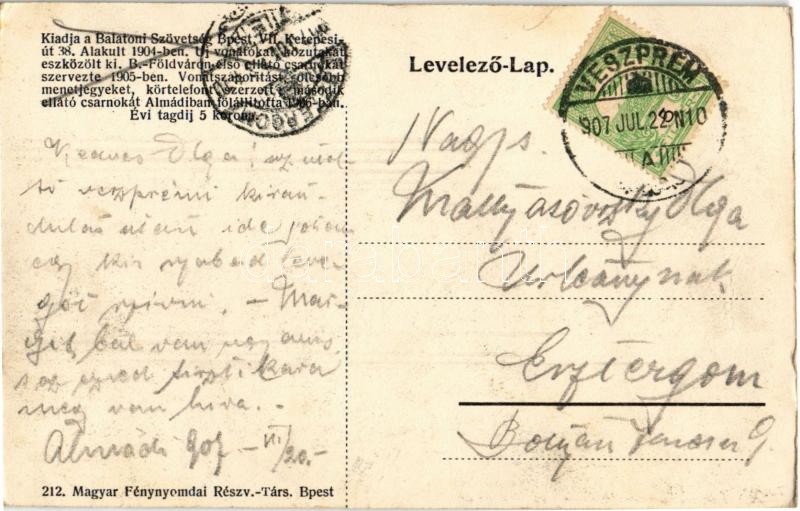 Kiadja a Balatoni Szövetség Bpest, VII. Kerepesi-
út 38. Alakult 1904-ben. Uj vonatokat, közutakat
eszközölt ki. B.-Földváron első ellátó csarnokát
szervezte 1905-ben. Vonatszaporitást, olcsóbb
menetjegyeket, körtelefont szerzett, második
ellátó csarnokát Almádiban fölállította 1906-ban.
Évi tagdij 5 korona.
Levelező-Lap.
VESZPRÉM
907 JUL. 22 N10
A
Kedves Olga! az utol-
só veszprémi kirán-
dulás után ide jöttem
egy kis szabad leve-
gőt szívni. – Mar-
git bál van ugyanis
s az ezred tiszti kara
meg van híva. –
Almádi 907 – VII/20. –
Nags.
Olga
Urleánynak
Esztergom
Ferencz
212. Magyar Fénynyomdai Részv.-Társ. Bpest